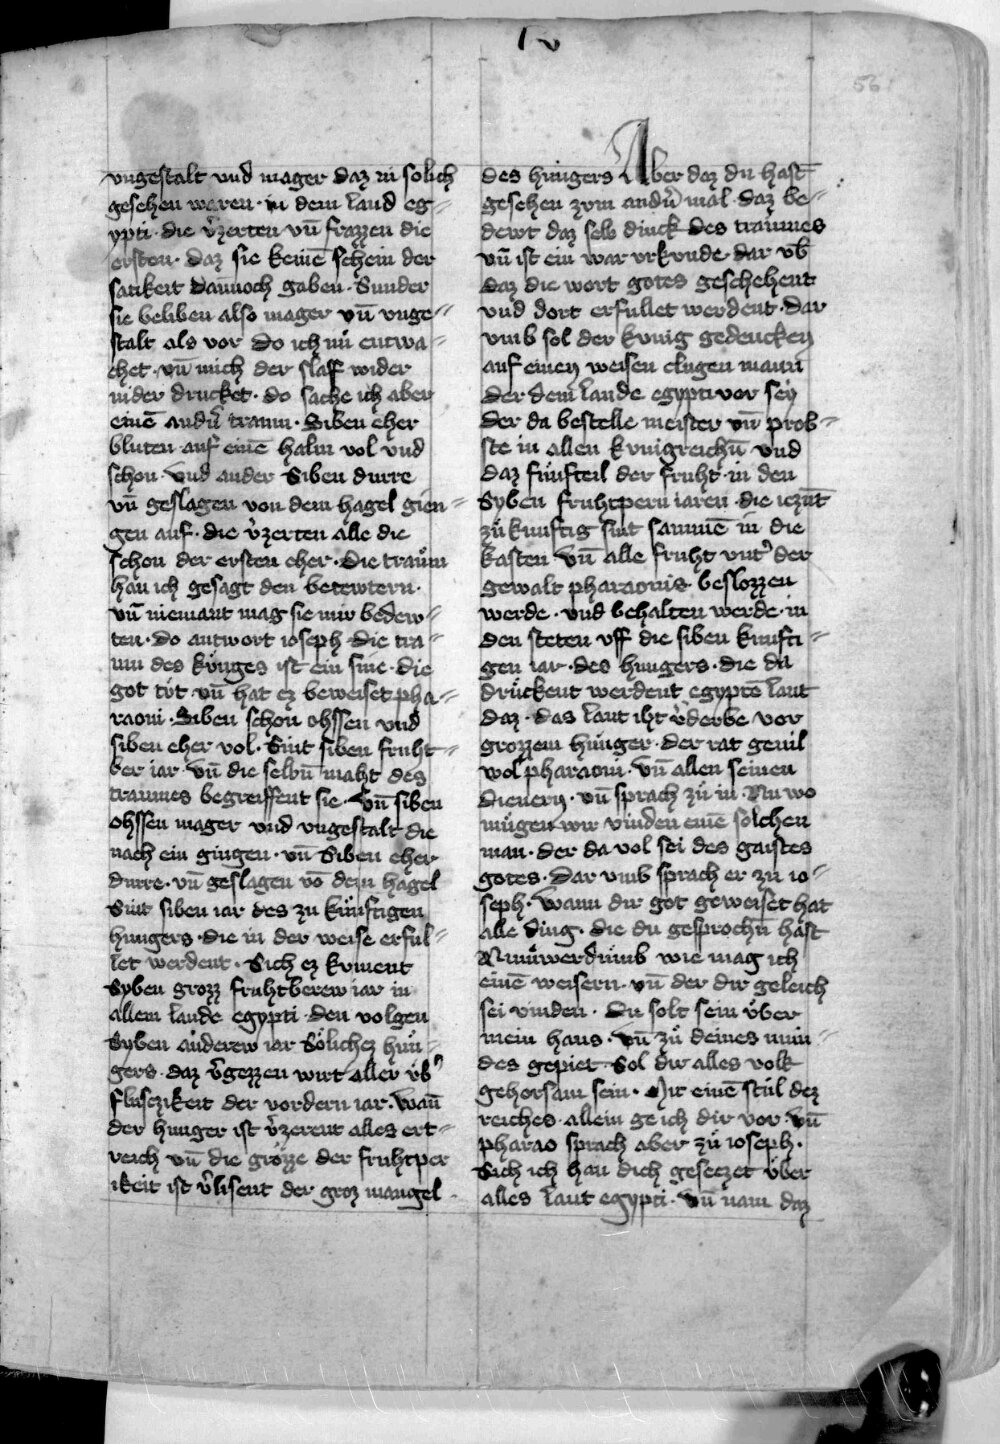 lv
56
vngestalt vnd mager daz in solich
gesehen waren · in dem land eg⸗
ypti · die v͛zerten vn̄ frazzen die
ersten · daz sie keinē schein der
satikeit dannoch gaben · Sunder
sie beliben also mager vn̄ vnge⸗
stalt als vor do ich nu entwa⸗
chet · vn̄ mich der slaf wider
nider drucket · do sache ich aber
einē and͛n traum · Siben eher
bluten auf einē halm vol vnd
schon · vnd ander Siben durre
vn̄ geslagen von dem hagel gien⸗
gen auf · die v͛zerten alle die
schon der ersten eher · die traum
han ich gesagt den betewtern ·
vn̄ niemant mag sie mir bedew⸗
ten · do antwort ioseph die tra⸗
um des kuniges ist ein sine · die
got tut vn̄ hat ez beweiset pha⸗
raoni · Siben schon ohssen vnd
siben eher vol · Sint siben fruht⸗
ber iar · vn̄ die selbn̄ maht des
traumes begreiffent sie · vn̄ siben
ohssen mager vnd vngestalt die
nach ein gingen · vn̄ Siben eher
durre · vn̄ geslagen vō dem hagel
Sint siben iar des zu kunftigen
hungers · die in der weise erful⸗
let werdent · Sich ez kument
Syben grozz fruhtberew iar in
allem lande egypti · den volgen
Syben anderew iar Sölichez hun⸗
gers · daz v͛gezzen wirt aller vb͛
flusczikeit der vordern iar · wan̄
der hunger ist v͛zerent alles ert⸗
reich vn̄ die grözze der fruhtper
ikeit ist v͛lisent der groz mangel
des hungers Aber daz du hast
gesehen zum and͛n mal · daz be⸗
dewt daz selb dinck des traumes
vn̄ ist ein war vrkunde · dar vb͛
daz die wort gotes geschehent
vnd dort erfullet werdent · dar
vmb sol der kunig gedencken
auf einen weisen clugen mann
der dem lande egypti vor sey
der da bestelle meister vn̄ prob⸗
ste in allen kunigreichn̄ vnd
daz funfteil der fruht · in den
Syben fruhtpern iaren · die iezūt
zu kunftig sint sammē in die
kasten vn̄ alle fruht vnt͛ der
gewalt pharaonis · beslozzen
werde · vnd behalten werde · in
den steten vff die siben kunfti⸗
gen iar · des hungers · die da
drückent werdent egyptē lant
daz · das lant iht v͛derbe vor
grozzem hunger · der rat geuil
wol pharaoni · vn̄ allen seinen
dienern · vn̄ sprach zu in · Nu wo
mugen wir vinden einē solchen
man · der da vol sei des gaistes
gotes · Dar vmb sprach er zu io⸗
seph · wann dir got geweiset hat
alle ding · die du gesprochn̄ hast
wie mag ich
einē weisern · vn̄ der dir geleich
sei vinden · du solt sein vber
mein haus · vn̄ zu deines mun⸗
des gepiet Sol dir alles volk
gehorsam sein · Mit einē stul dez
reiches · allein ge ich dir vor · vn̄
pharao sprach aber zu ioseph ·
Sich ich han dich geseczet vber
alles lant egypti · vn̄ nam daz